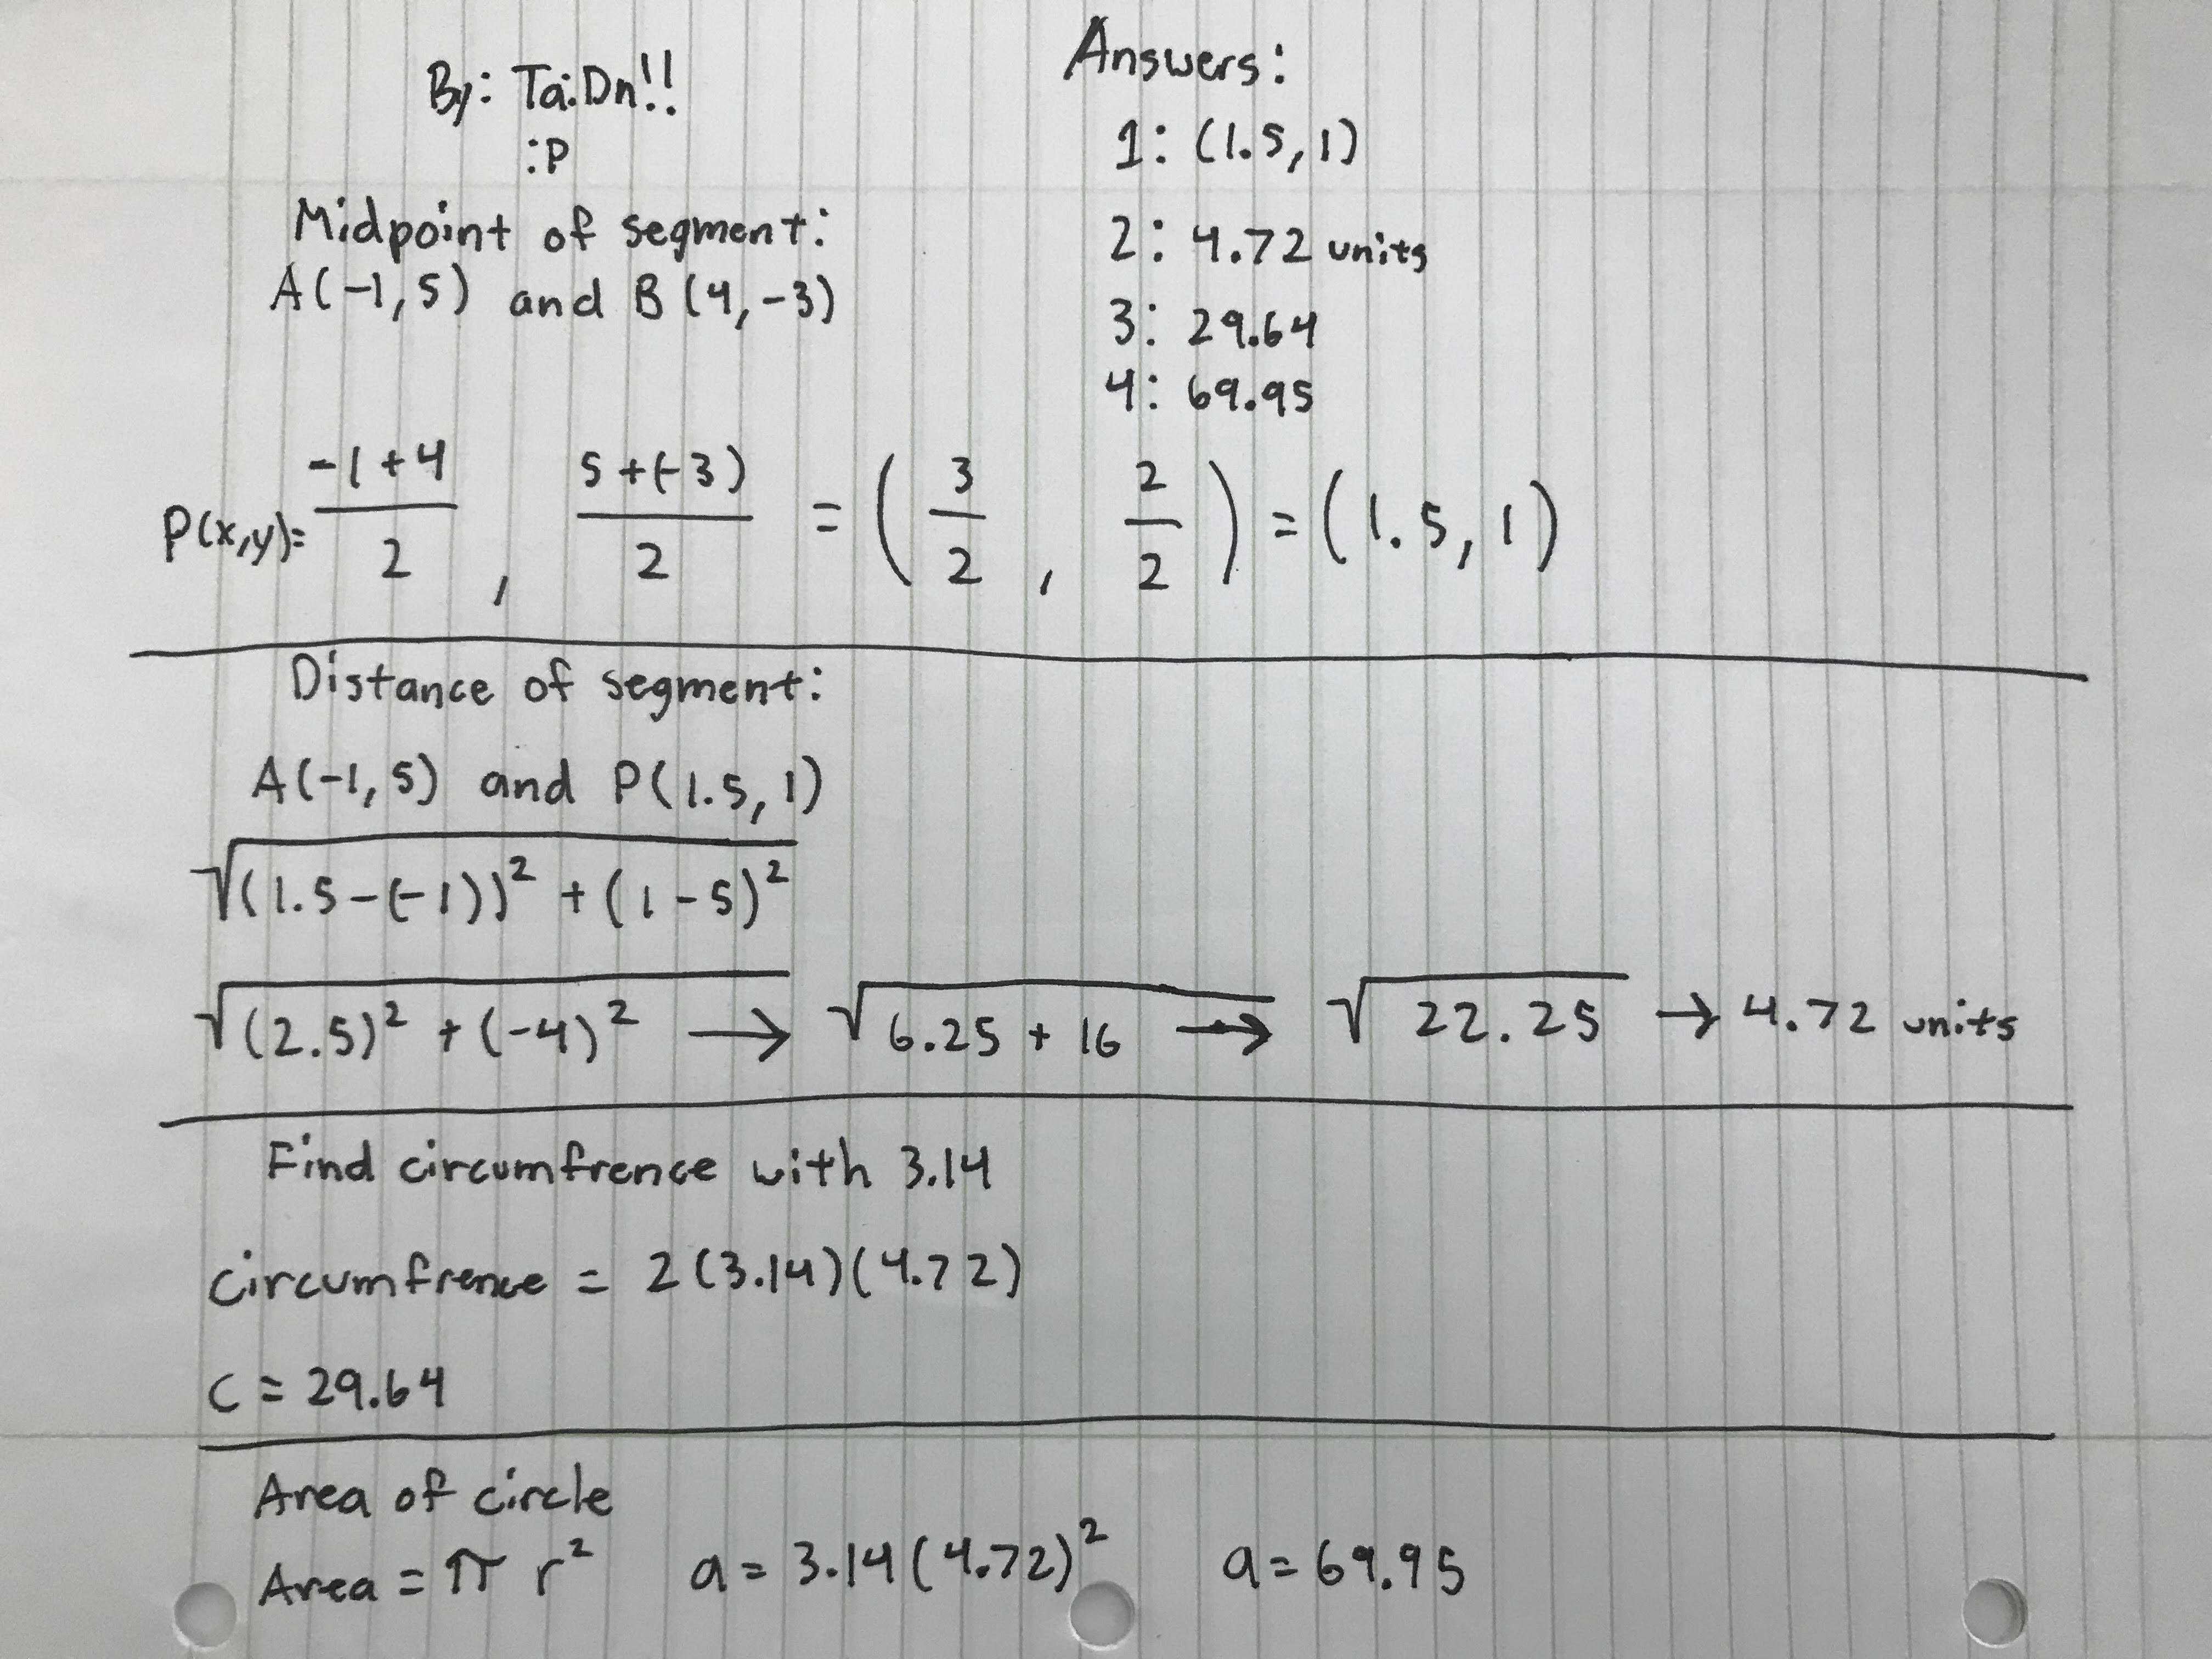 By: Tai.Dn!!
:P
Midpoint of segment:
A(-1,5) and B(4,-3)
Answers:
1: (1.5,1)
2: 4.72 units
3: 29.64
4: 69.95
P(x,y)= -1+4/2 , 5+(-3)/2 = (3/2 , 2/2) = (1.5, 1)
Distance of segment:
A(-1,5) and P(1.5,1)
√(1.5-(-1))² + (1-5)²
√(2.5)² + (-4)² → √6.25 + 16 → √22.25 → 4.72 units
Find circumfrence with 3.14
Circumfrence = 2(3.14)(4.72)
C = 29.64
Area of circle
Area = π r² a = 3.14(4.72)² a = 69.95